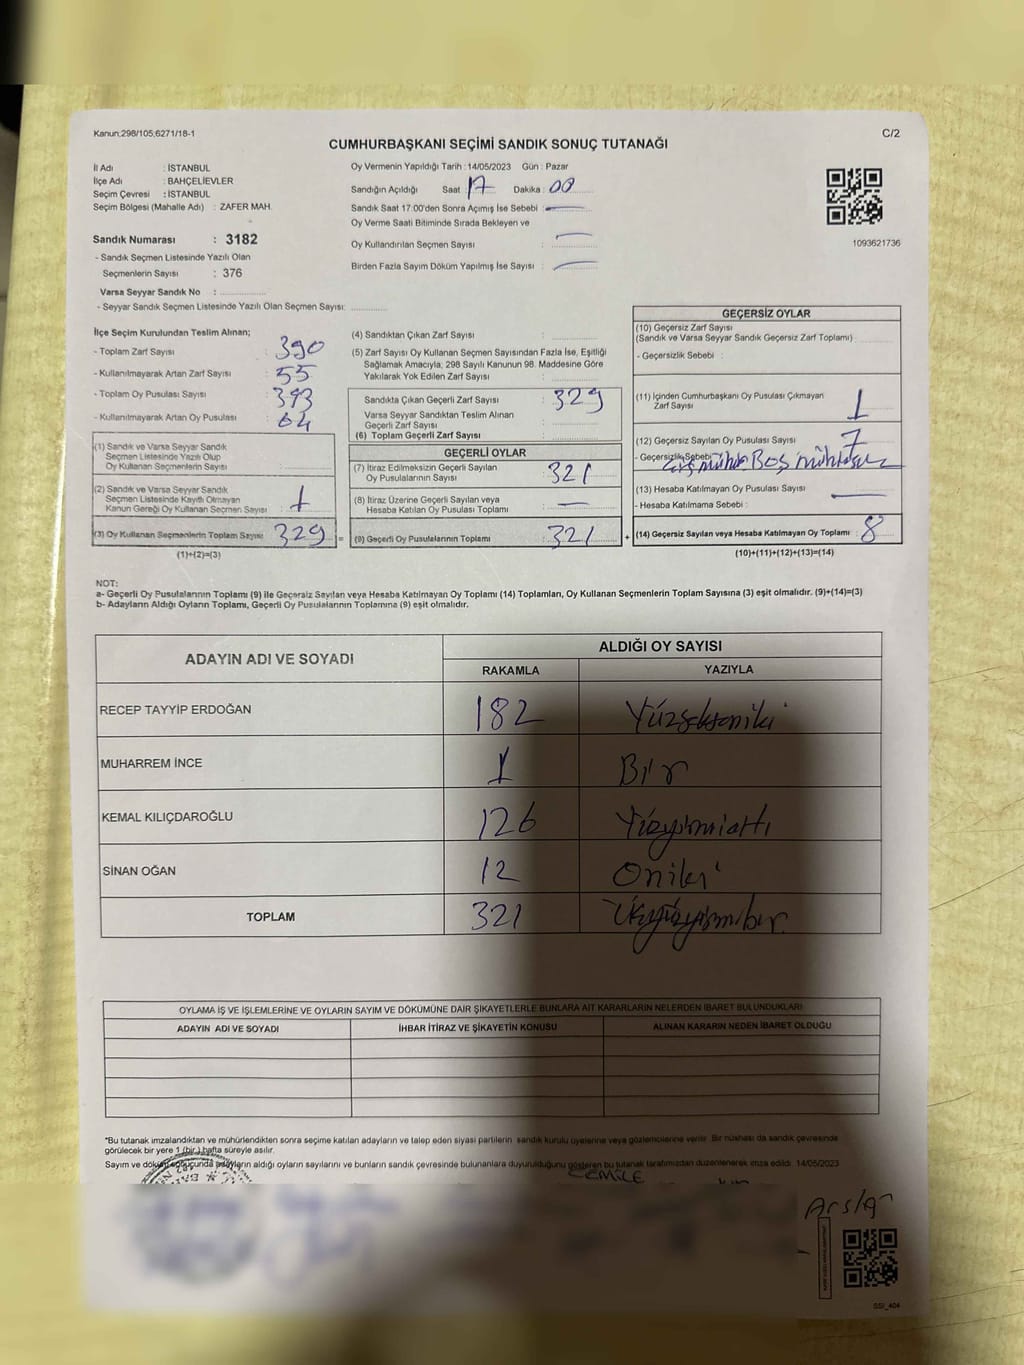 Kanun:298/105;6271/18-1
C/2
CUMHURBAŞKANI SEÇİMİ SANDIK SONUÇ TUTANAĞI
İl Adı : İSTANBUL
İlçe Adı : BAHÇELİEVLER
Seçim Çevresi : İSTANBUL
Seçim Bölgesi (Mahalle Adı) : ZAFER MAH.
Sandık Numarası : 3182
- Sandık Seçmen Listesinde Yazılı Olan
Seçmenlerin Sayısı : 376
Varsa Seyyar Sandık No :
- Seyyar Sandık Seçmen Listesinde Yazılı Olan Seçmen Sayısı:
Oy Vermenin Yapıldığı Tarih : 14/05/2023 Gün : Pazar
Sandığın Açıldığı Saat 17 Dakika : 00
Sandık Saat 17.00'den Sonra Açımış İse Sebebi :
Oy Verme Saati Bitiminde Sırada Bekleyen ve
Oy Kullandırılan Seçmen Sayısı :
Birden Fazla Sayım Döküm Yapılmış İse Sayısı :
1093621736
İlçe Seçim Kurulundan Teslim Alınan;
- Toplam Zarf Sayısı : 390
- Kullanılmayarak Artan Zarf Sayısı : 55
- Toplam Oy Pusulası Sayısı : 393
- Kullanılmayarak Artan Oy Pusulası : 64
(1) Sandık ve Varsa Seyyar Sandık
Seçmen Listesinde Yazılı Olup
Oy Kullanan Seçmenlerin Sayısı :
(2) Sandık ve Varsa Seyyar Sandık
Seçmen Listesinde Kayıtlı Olmayan
Kanun Gereği Oy Kullanan Seçmen Sayısı : 1
(3) Oy Kullanan Seçmenlerin Toplam Sayısı : 329 =
(1)+(2)=(3)
(4) Sandıktan Çıkan Zarf Sayısı :
(5) Zarf Sayısı Oy Kullanan Seçmen Sayısından Fazla İse, Eşitliği
Sağlamak Amacıyla; 298 Sayılı Kanunun 98. Maddesine Göre
Yakılarak Yok Edilen Zarf Sayısı :
Sandıkta Çıkan Geçerli Zarf Sayısı : 329
Varsa Seyyar Sandıktan Teslim Alınan
Geçerli Zarf Sayısı :
(6) Toplam Geçerli Zarf Sayısı :
GEÇERLİ OYLAR
(7) İtiraz Edilmeksizin Geçerli Sayılan
Oy Pusulalarının Sayısı : 321
(8) İtiraz Üzerine Geçerli Sayılan veya
Hesaba Katılan Oy Pusulası Toplamı :
(9) Geçerli Oy Pusulalarının Toplamı : 321 +
GEÇERSİZ OYLAR
(10) Geçersiz Zarf Sayısı
(Sandık ve Varsa Seyyar Sandık Geçersiz Zarf Toplamı) :
- Geçersizlik Sebebi :
(11) İçinden Cumhurbaşkanı Oy Pusulası Çıkmayan
Zarf Sayısı : 1
(12) Geçersiz Sayılan Oy Pusulası Sayısı : 7
- Geçersizlik Sebebi Boş
(13) Hesaba Katılmayan Oy Pusulası Sayısı :
- Hesaba Katılmama Sebebi :
(14) Geçersiz Sayılan veya Hesaba Katılmayan Oy Toplamı : 8
(10)+(11)+(12)+(13)=(14)
NOT:
a- Geçerli Oy Pusulalarının Toplamı (9) ile Geçersiz Sayılan veya Hesaba Katılmayan Oy Toplamı (14) Toplamları, Oy Kullanan Seçmenlerin Toplam Sayısına (3) eşit olmalıdır. (9)+(14)=(3)
b- Adayların Aldığı Oyların Toplamı, Geçerli Oy Pusulalarının Toplamına (9) eşit olmalıdır.
ADAYIN ADI VE SOYADI
ALDIĞI OY SAYISI
RAKAMLA YAZIYLA
RECEP TAYYİP ERDOĞAN 182 Yüzsekseniki
MUHARREM İNCE 1 Bir
KEMAL KILIÇDAROĞLU 126 Yüzyirmialtı
SİNAN OĞAN 12 Oniki
TOPLAM 321 Üçyüzyirmibir
OYLAMA İŞ VE İŞLEMLERİNE VE OYLARIN SAYIM VE DÖKÜMÜNE DAİR ŞİKAYETLERLE BUNLARA AİT KARARLARIN NELERDEN İBARET BULUNDUKLARI
ADAYIN ADI VE SOYADI İHBAR İTİRAZ VE ŞİKAYETİN KONUSU ALINAN KARARIN NEDEN İBARET OLDUĞU
*Bu tutanak imzalandıktan ve mühürlendikten sonra seçime katılan adayların ve talep eden siyasi partilerin sandık kurulu üyelerine veya gözlemcilerine verilir. Bir nüshası da sandık çevresinde
görülecek bir yere 1 (bir) hafta süreyle asılır.
Sayım ve döküm sonucunda adayların aldığı oyların sayılarını ve bunların sandık çevresinde bulunanlara duyurulduğunu gösteren bu tutanak tarafımızdan düzenlenerek imza edildi. 14/05/2023
CEMİLE
Arslan
SSI_404